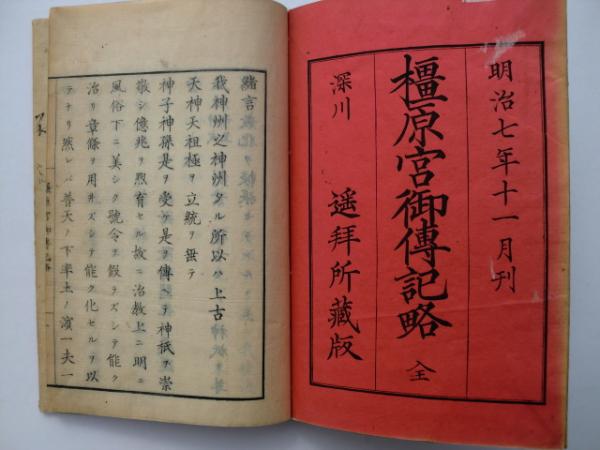 明治七年十一月刊
橿原宮御傳記略 全
深川 遥拜所藏版
緒言
我神州之神洲タル所以ハ上古
天神天祖極ヲ立統ヲ垂テ
神子神孫是ヲ受ケ是ヲ傳ヘテ神祇ヲ崇
敬シ億兆ヲ煦育セル故ニ治教上ニ明ニ
風俗下ニ美シク號令ヲ假ラズシテ能ク
治リ章條ヲ用井ズシテ能ク化セルヲ以
テナリ然レバ普天ノ下率土ノ濱一夫一